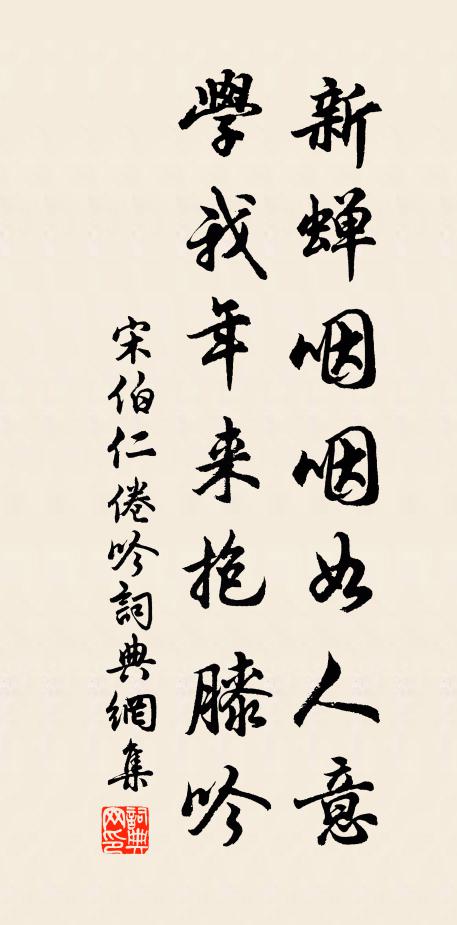 新蝉咽咽如人意
學我年来抱膝吟
宋伯仁倦吟詞典網集
詞典网印